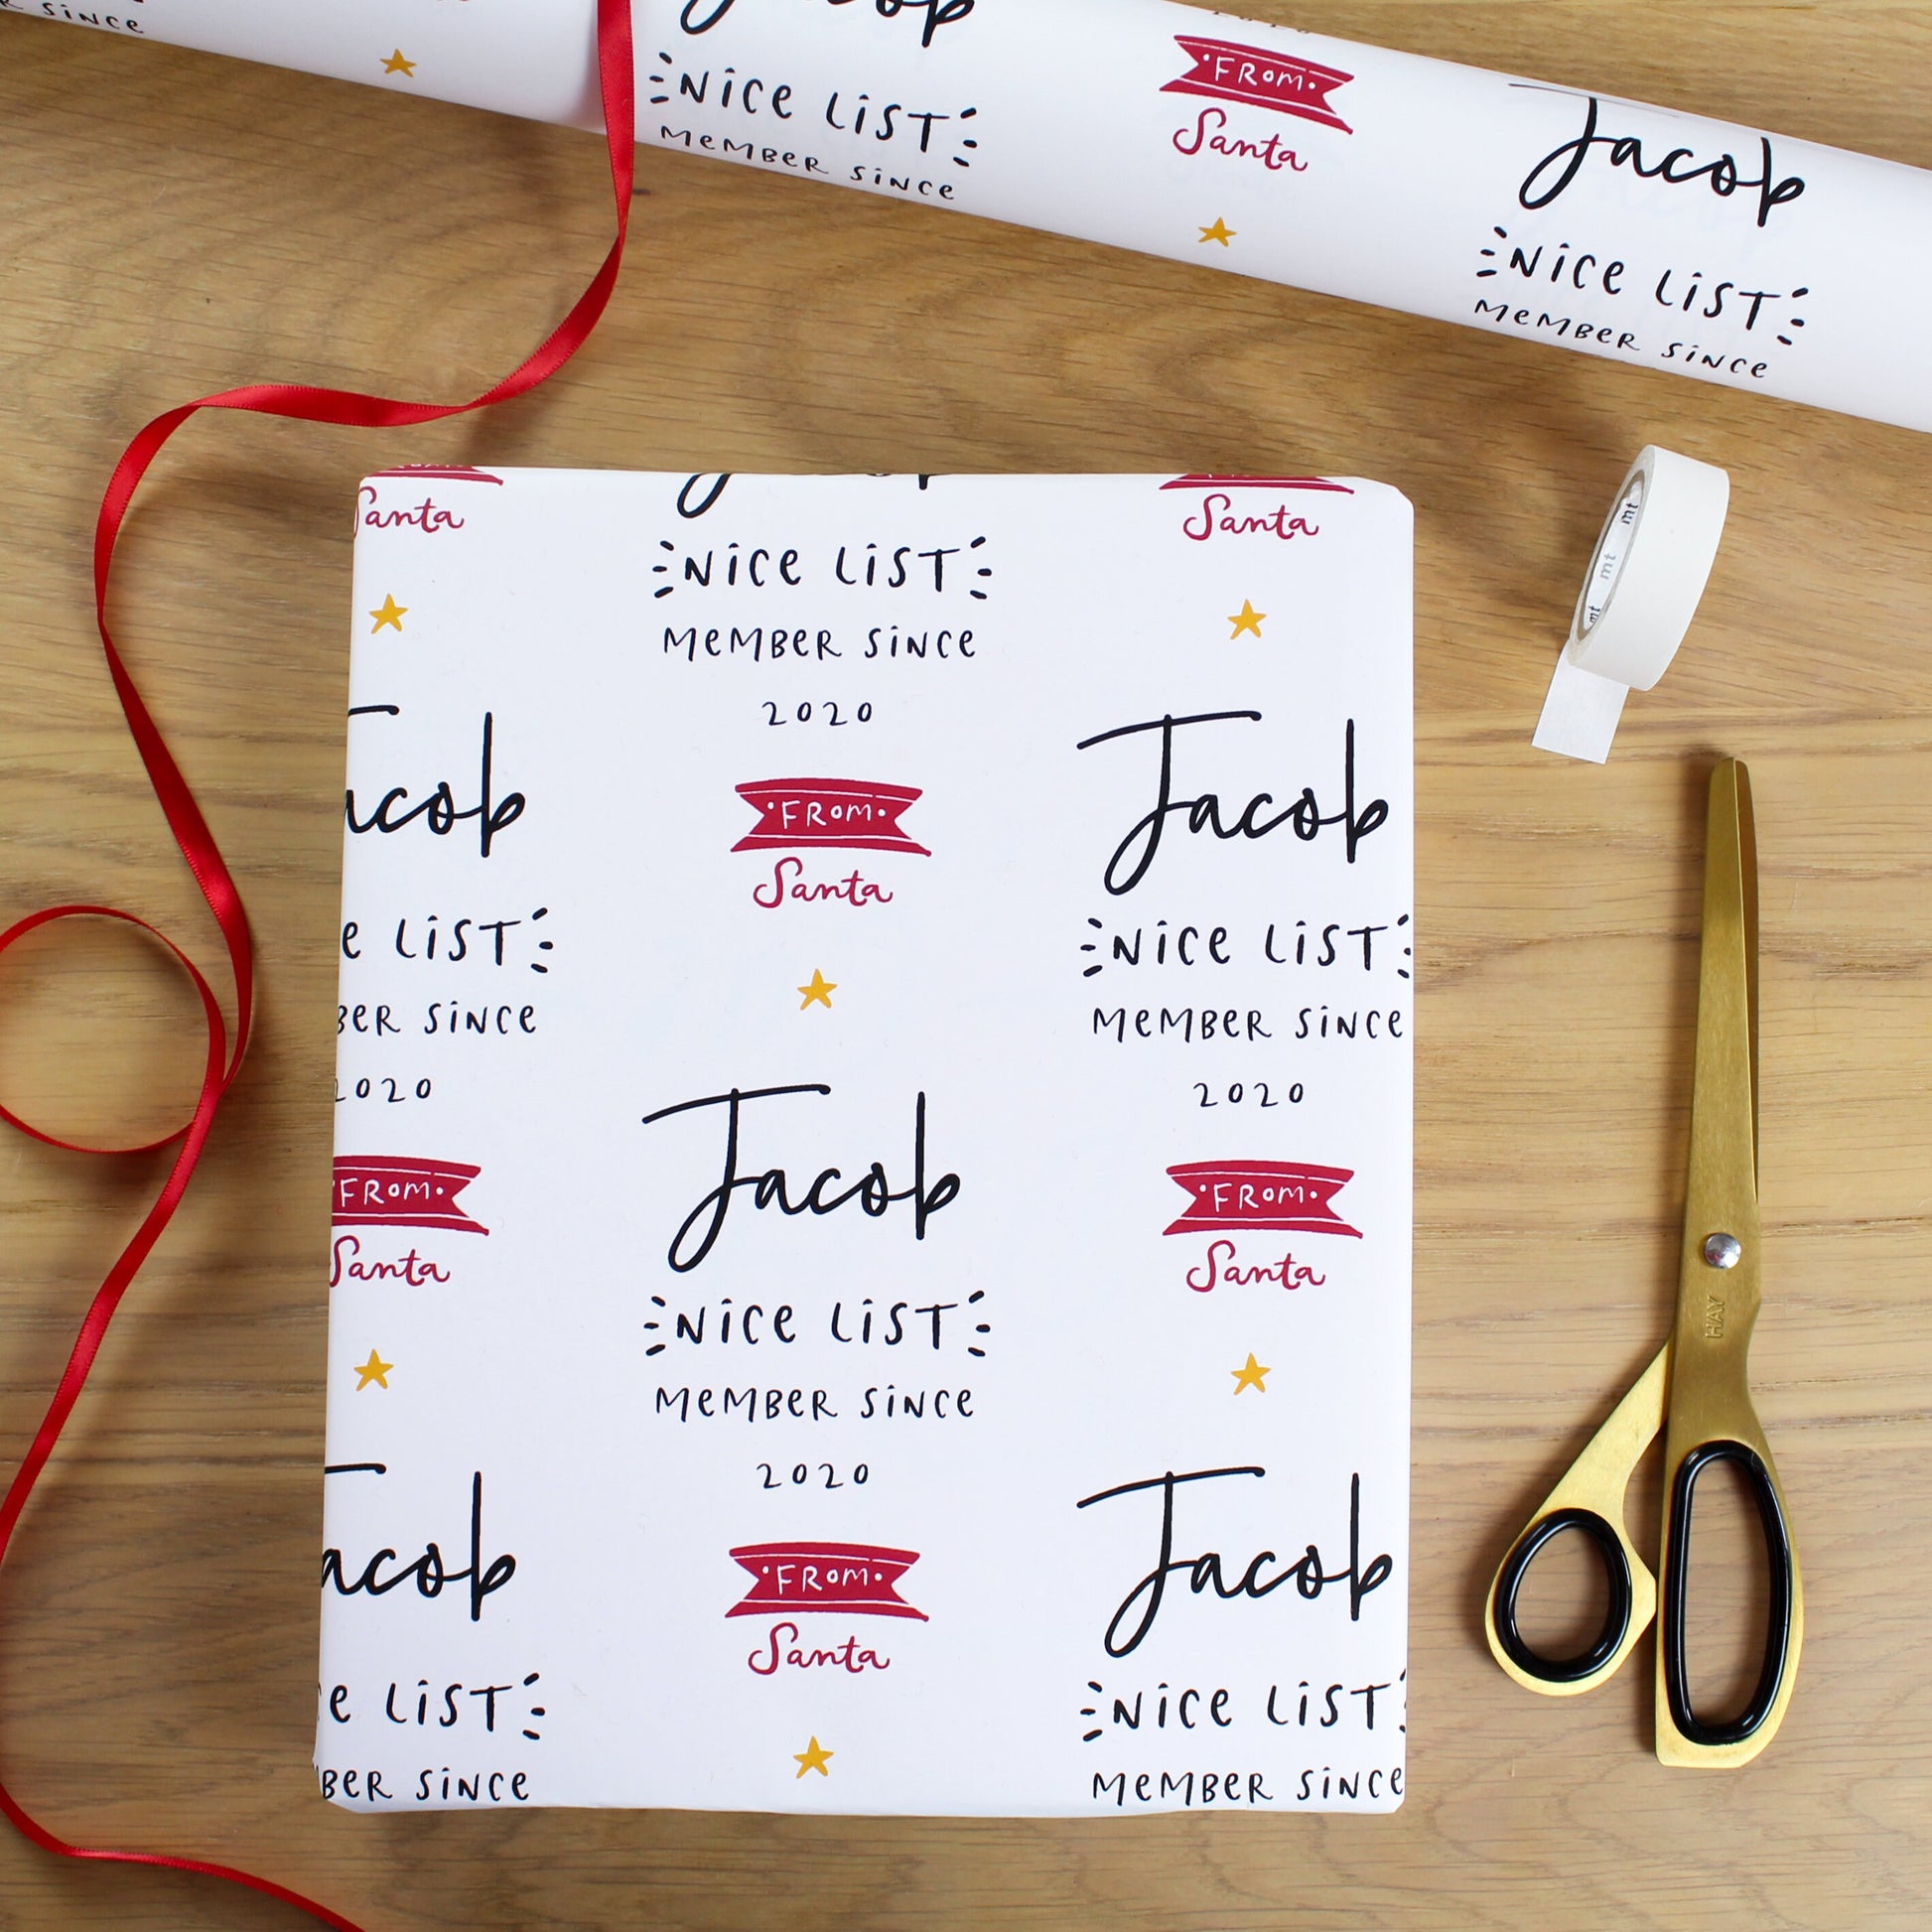 SiNCe
Jacob
NiCe LiST
MeMBeR SiNCe
FROM
Santa
Jacob
NiCe LiST
MeMBeR SiNCe
Santa
NiCe LiST
MeMBeR SiNCe
2020
FROM
Santa
Santa
Jacob
NiCe LiST
MeMBeR SiNCe
2020
FROM
Santa
acob
e LiST
BeR SiNCe
2020
FROM
Santa
Jacob
NiCe LiST
MeMBeR SiNCe
2020
FROM
Santa
acob
e LiST
BeR SiNCe
Jacob
NiCe LiST
MeMBeR SiNCe
mt
mt
mt
HAY